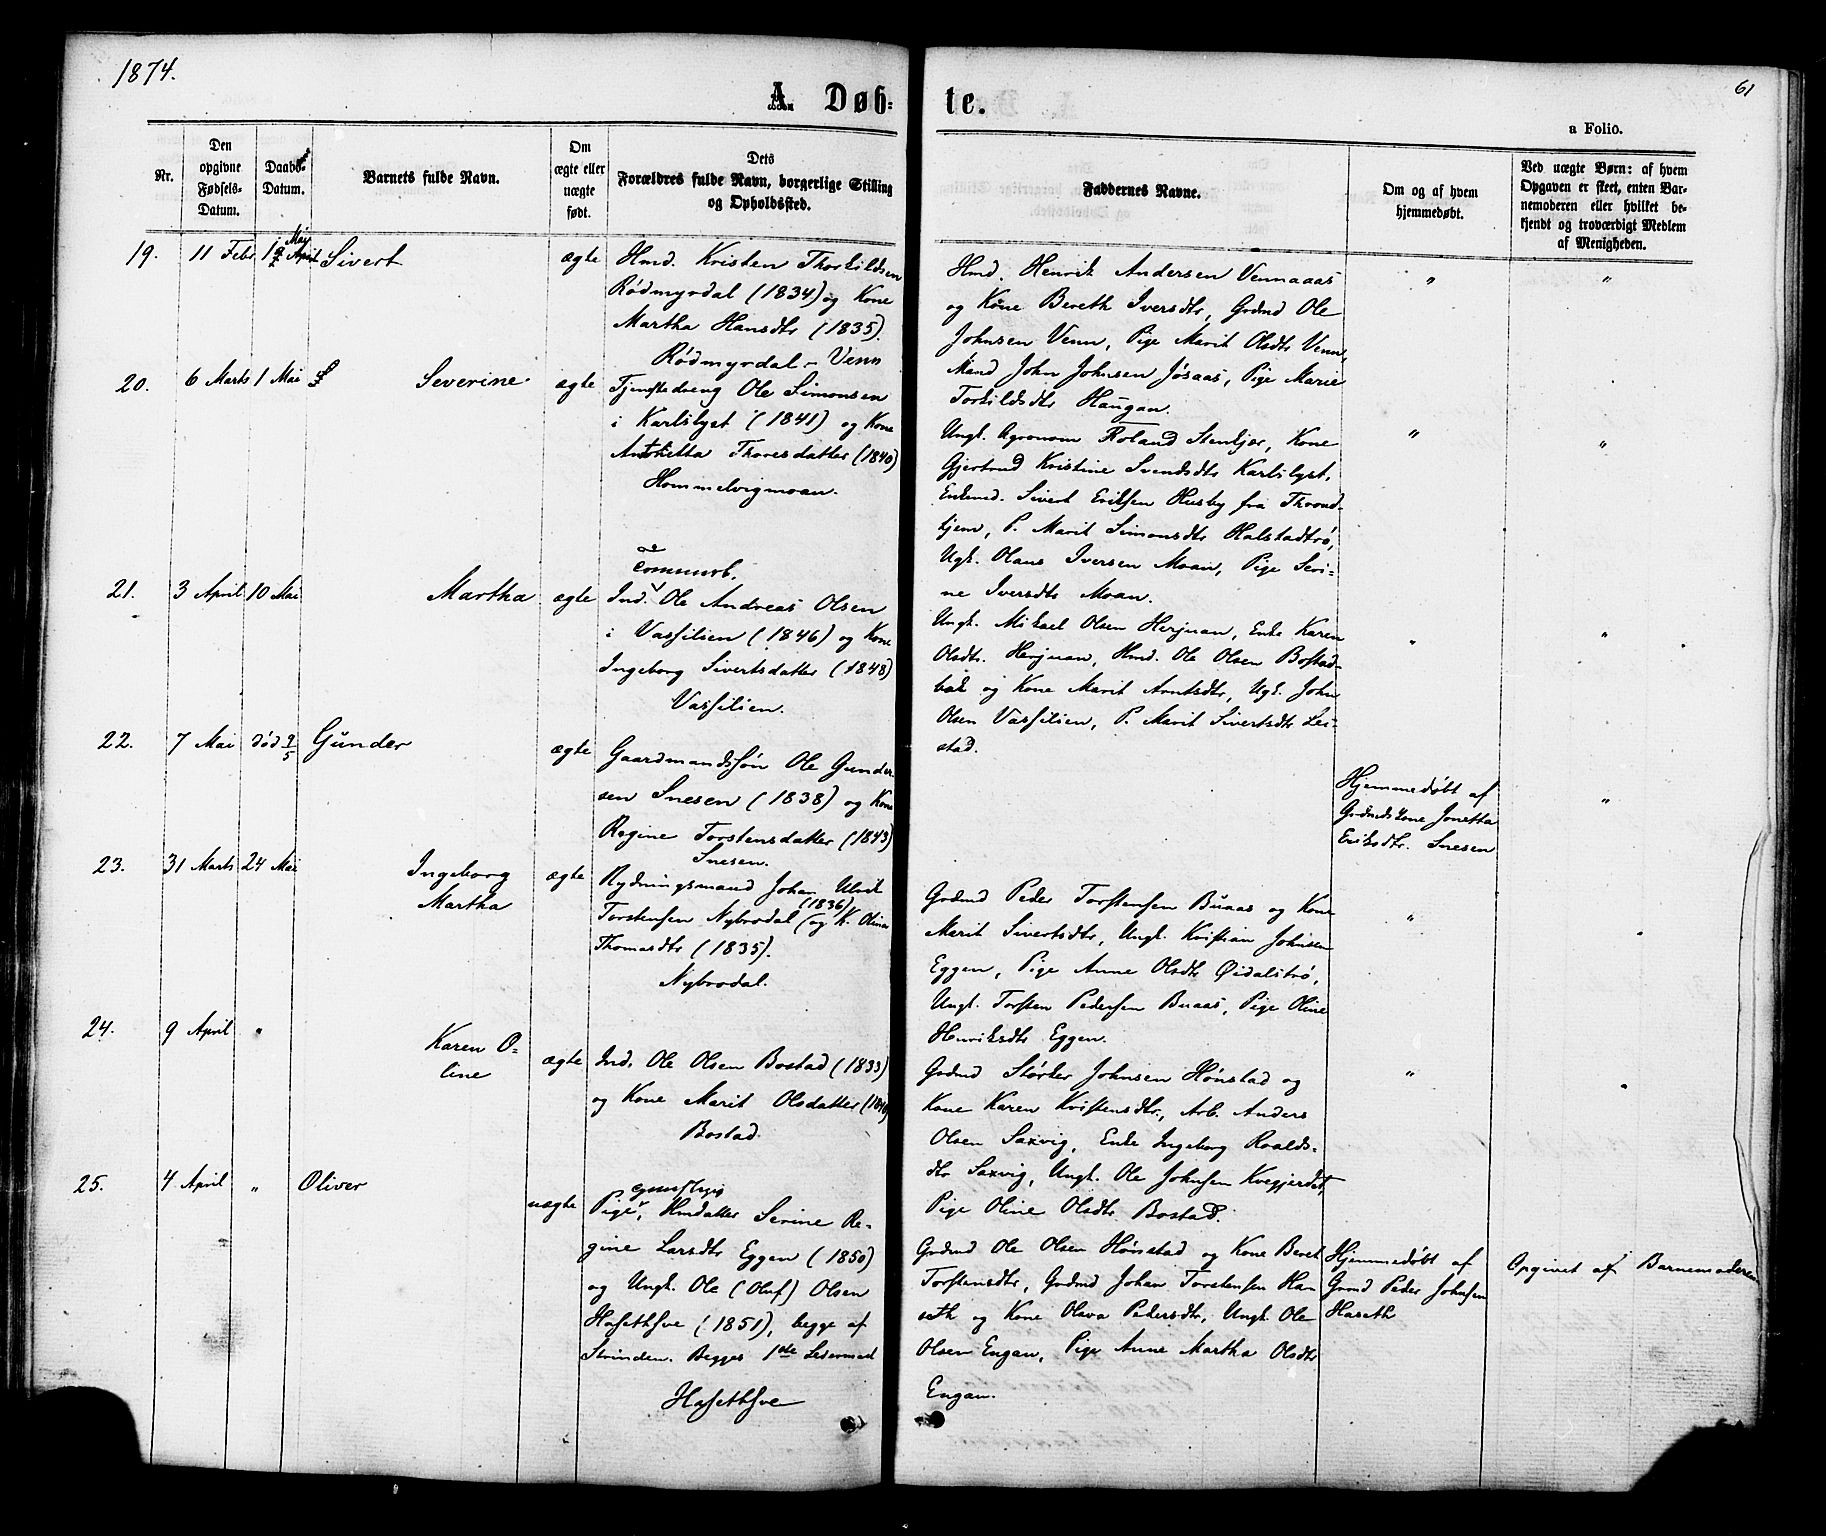 1874.
61
A. Døb-
te.
a Folio.
Nr.
Den opgivne Fødsels-Datum.
Daabs-Datum.
Barnets fulde Navn.
Om ægte eller uægte født.
Dets Forældres fulde Navn, borgerlige Stilling og Opholdssted.
Faddernes Navne.
Om og af hvem hjemmedøbt.
Ved uægte Børn: af hvem Opgaven er skeet, enten Barnemoderen eller hvilket bekjendt og troværdigt Medlem af Menigheden.
19. 11 Febr 1 Mai Sivert ægte
Hmd. Kristen Thorkildsen
Rødmyrdal (1834) og Kone
Martha Hansdtr (1835).
Rødmyrdal - Venn
Hmd. Henrik Andersen Vennaaas
og Kone Bereth Iversdtr, Grdmd Ole
Johnsen Venn, Pige Marit Olsdtr Venn,
Mand John Johnsen Jøsaas, Pige Marie
Torkildsdtr Haugan.
" "
20. 6 Marts 1 Mai Severine ægte
Tjenstedreng Ole Simonsen
i Karlslyst (1841) og Kone
Antonetta Thoresdatter (1840)
Hommelvigmoan.
Ungk. Agronom Roland Stenkjer, Kone
Gjertrud Kristine Svendsdtr Karlslyst,
Enkemd. Sivert Eriksen Husby fra Thrond-
hjem, P. Marit Simonsdtr Halstadtrø,
Ugk. Olaus Iversen Moan, Pige Seri-
ne Iversdtr Moan.
" "
21. 3 April 10 Mai Martha ægte
Ind. Ole Andreas Olsen
i Vassilien (1846) og Kone
Ingeborg Sivertsdatter (1848)
Vassilien.
Ungk. Mikael Olsen Herjuan, Enke Karen
Olsdtr. Herjuan, Hmd. Ole Olsen Bostad-
bak og Kone Marit Arntsdtr, Ugk. John
Olsen Vassilien, P. Marit Sivertsdtr Lei-
stad.
" "
22. 7 Mai død 9/5 Gunder ægte
Gaardmandssøn Ole Gunder-
sen Snesen (1838) og Kone
Regine Torstensdatter (1843)
Snesen.
Hjemmedøbt af
Grdmdskone Jonetta
Eriksdtr. Snesen
"
23. 31 Marts 24 Mai Ingeborg
Martha ægte
Rydningsmand Johan Ulrik
Torstensen Nybrodal (1836) og K. Olina
Thomasdtr (1835).
Nybrodal.
Grdmd Peder Torstensen Buaas og Kone
Marit Sivertsdtr, Ungk. Kristian Johnsen
Eggen, Pige Anne Olsdtr Øidalstrø,
Ungk. Torsten Pedersen Buaas, Pige Oline
Henriksdtr Eggen.
" "
24. 9 April " Karen O-
line ægte
Ind. Ole Olsen Bostad (1833)
og Kone Marit Olsdatter
Bostad
Grdmd Størker Johnsen Hønstad og
Kone Karen Kristensdtr, Arb. Anders
Olsen Saxvig, Enke Ingeborg Roalds-
dtr Saxvig, Ungk. Ole Johnsen Kvegjerdet,
Pige Oline Olsdtr Bostad.
" "
25. 4 April " Oliver uægte
Pige, Hmdatter Serine Re-
gine Larsdtr Eggen (1850)
og Ungk. Ole (Oluf) Olsen
Hasethsve (1851), begge af
Strinden. Begges 1ste Leiermaal
Hasethsve
Grdmd Ole Olsen Hønstad og Kone Beret
Torstensdtr, Grdmd Johan Torstensen Han
seth og Kone Olava Pedersdtr, Ungk. Ole
Olsen Engan, Pige Anne Martha Olsdtr
Engan.
Hjemmedøbt af
Grmd Peder Johnsen
Haseth
Opgivet af Barnemoderen